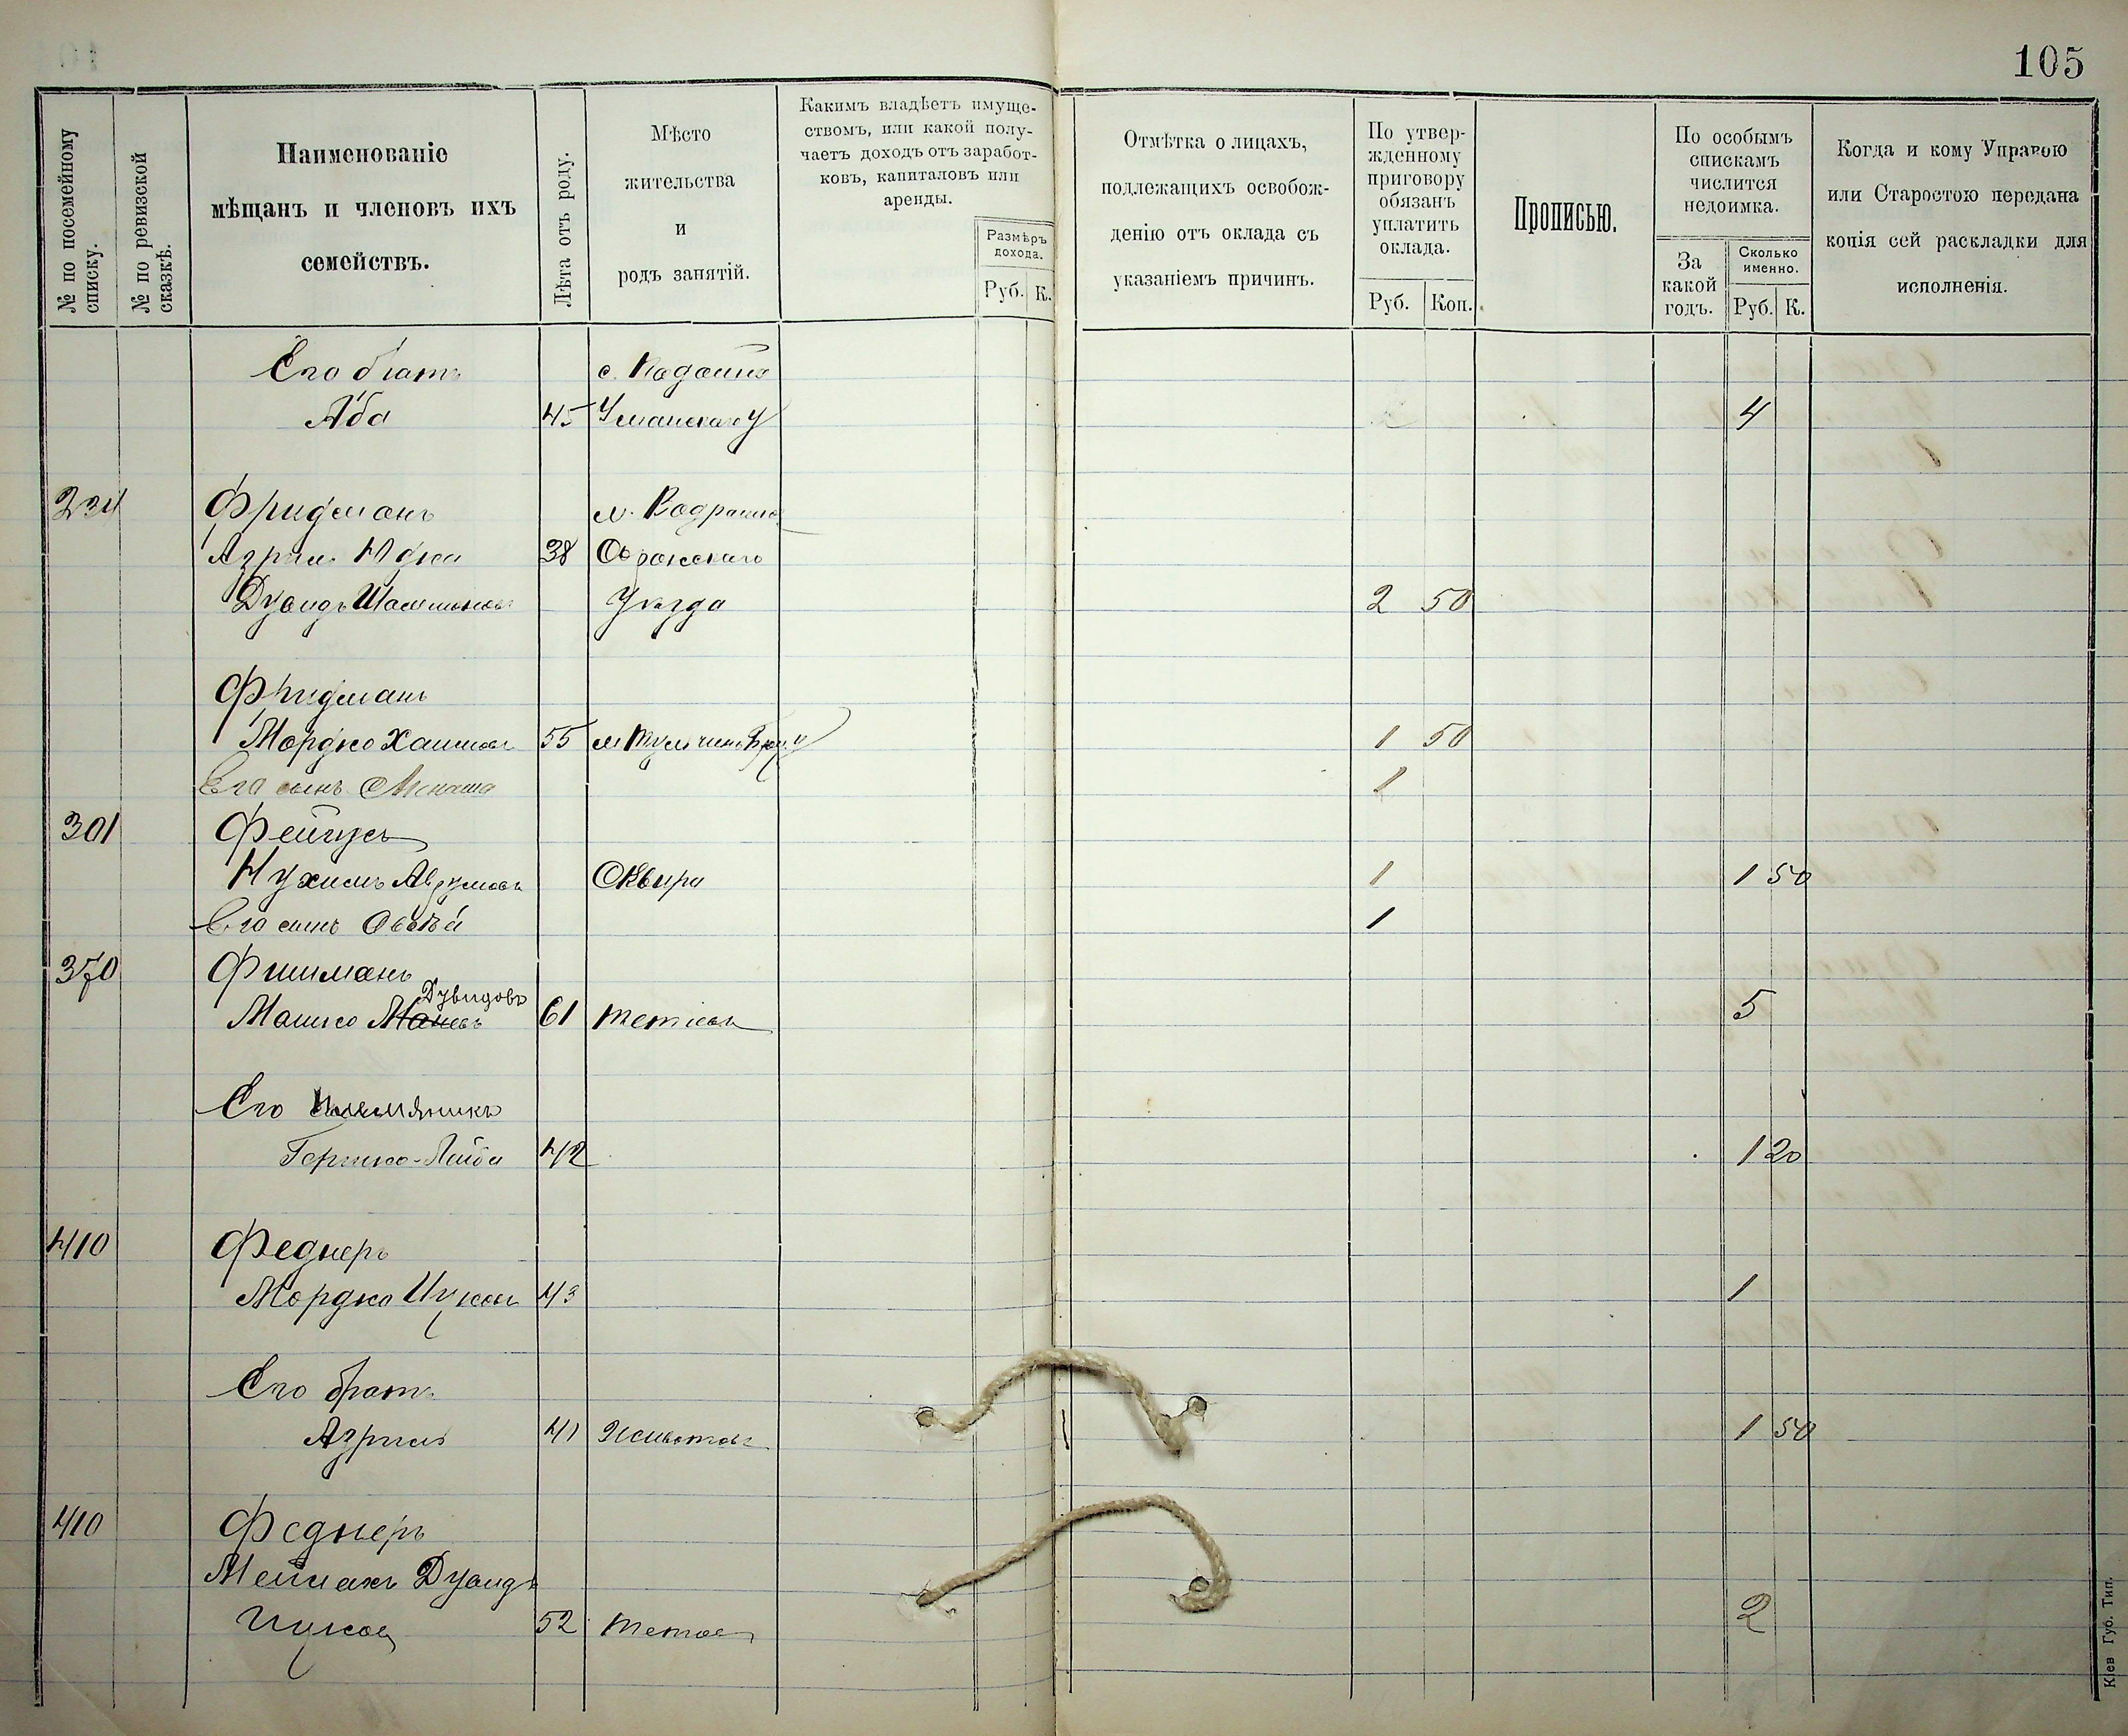 105
№ по посемейному списку.
№ по ревизской сказкѣ.
Наименованіе
мѣщанъ и членовъ ихъ
семействъ.
Лѣта отъ роду.
Мѣсто
жительства
и
родъ занятій.
Какимъ владѣетъ имуще-
ствомъ, или какой полу-
чаетъ доходъ отъ заработ-
ковъ, капиталовъ или
аренды.
Размѣръ
дохода.
Руб. К.
Отмѣтка о лицахъ,
подлежащихъ освобож-
денію отъ оклада съ
указаніемъ причинъ.
По утвер-
жденному
приговору
обязанъ
уплатить
оклада.
Руб. Коп.
Прописью.
По особымъ
спискамъ
числится
недоимка.
За
какой
годъ.
Сколько
именно.
Руб. К.
Когда и кому Управою
или Старостою передана
копія сей раскладки для
исполненія.
Его братъ с.
Аба 45 Уманскаго у 4
234 Фридманъ м.
Азрилъ 38
Дувидъ Уѣзда 2 50
Фридманъ
Мордко Хаимовъ 55 м Тульчинъ 1 50
Его сынъ 1
301
Нухимъ Аврумовъ Сквира 1 1 50
Его сынъ 1
370 Фишманъ
Дувидовъ
Мошко 61 Тетіевъ 5
Его племянникъ
Гершко-Лейба 42 1 20
410 Феднеръ
Мордко Ицковъ 43 1
Его братъ
Азрилъ 41 Животовъ 1 50
410 Феднеръ
Дувидъ
Ицков 52 2
Кіев Губ. Тип.